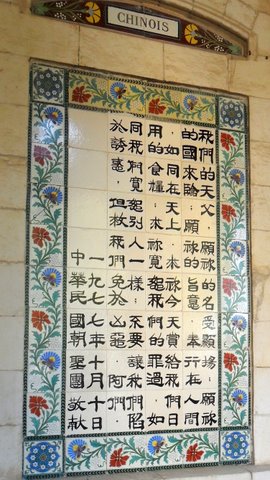 CHINOIS
我們的天父．願祢的名受顯揚．願祢
的國來臨．願祢的旨意．奉行在人間
．如同在天上．求祢今天賞給我們日
用的食糧．求祢寬恕我們的罪過．如
同我們寬恕別人一樣．不要讓我們陷
於誘惑．但救我們免於凶惡．阿們
一九七七年十月十日
中華民國朝聖團敬献